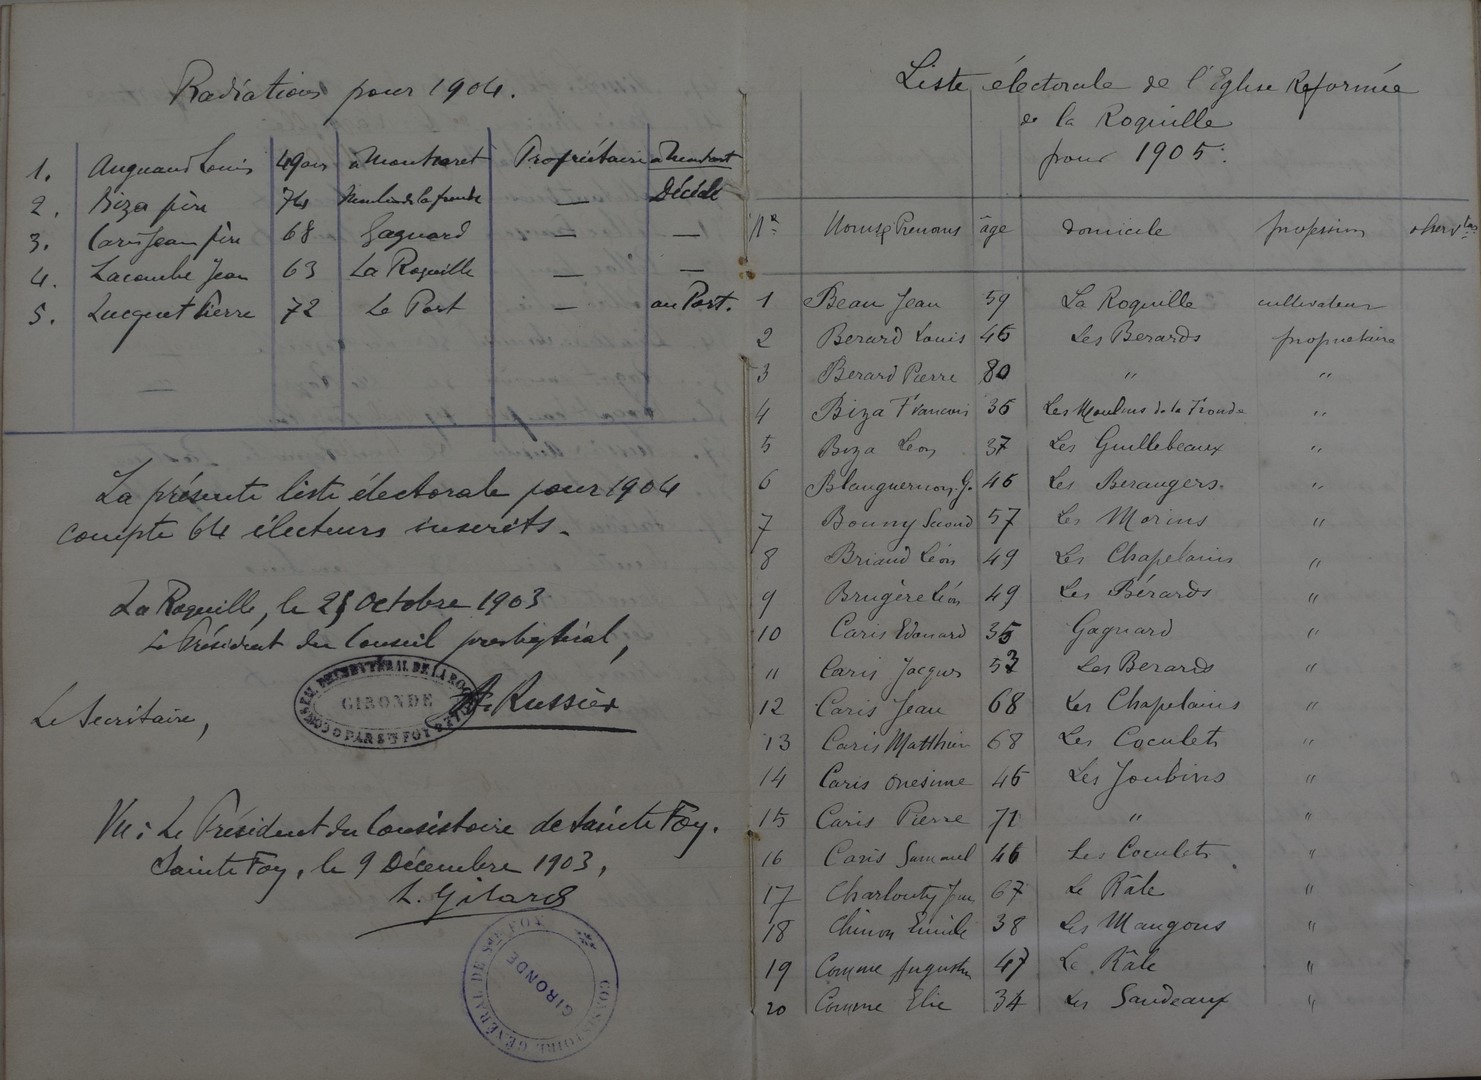 Radiations pour 1904.
1. Auguand Louis 49 ans à Montcaret Propriétaire
2. Biza père 74 Moulin de la fronde — Décédé
3. Caris Jean père 68 Gagnard — —
4. Lacombe Jean 63 La Roquille — —
5. Lucquet Pierre 72 Le Port — au Port.
La présente liste électorale pour 1904
compte 64 électeurs inscrits.
La Roquille, le 25 Octobre 1903
Le Président du Conseil presbytéral,
CONSEIL PRESBYTÉRAL DE LA ROQUILLE PAR STE FOY
GIRONDE
A. Russier
Le Secrétaire,
Vu : Le Président du Consistoire de Sainte Foy.
Sainte Foy, le 9 Décembre 1903,
L. Gilard
CONSISTOIRE GÉNÉRAL DE STE FOY
GIRONDE
Liste électorale de l'Eglise Réformée
de la Roquille
pour 1905.
Nos Noms & Prénoms âge domicile profession observtions
1 Beau Jean 59 La Roquille cultivateur
2 Berard Louis 46 Les Berards propriétaire
3 Berard Pierre 80 " "
4 Biza Francois 36 Les Moulins de la Fronde "
5 Biza Leon 37 Les Guillebeaux "
6 Blanguernon G. 46 Les Berangers. "
7 Bonny Second 57 Les Morins "
8 Briand Léon 49 Les Chapelains "
9 Brugère Léon 49 Les Bérards "
10 Caris Edouard 35 Gagnard "
11 Caris Jacques 53 Les Berards "
12 Caris Jean 68 Les Chapelains "
13 Caris Matthieu 68 Les Coculets "
14 Caris Onesime 46 Les Joubins "
15 Caris Pierre 71 " "
16 Caris Samuel 46 Les Coculets "
17 Charlouty Jean 67 Le Râle "
18 Chinon Emile 38 Les Mangons "
19 Comme Augustin 47 Le Râle "
20 Comme Elie 34 Les Sandeaux "